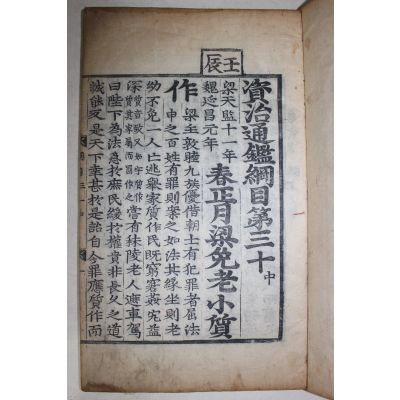 壬辰
資治通鑑綱目第三十中
梁天監十一年
魏延昌元年
春正月梁免老小質
作
梁主敦睦九族優借朝士有犯罪者屈法
申之百姓有罪則案之如法其緣坐則老
幼不免一人亡逃舉家質作民既窮窘姦宄益
深 質音致又如字質作 質其家屬而罰作之 嘗有秣陵老人遮車駕
曰陛下為法急於庶民緩於權貴非長久之道
誠能反是天下幸甚於是詔自今罪應質作而